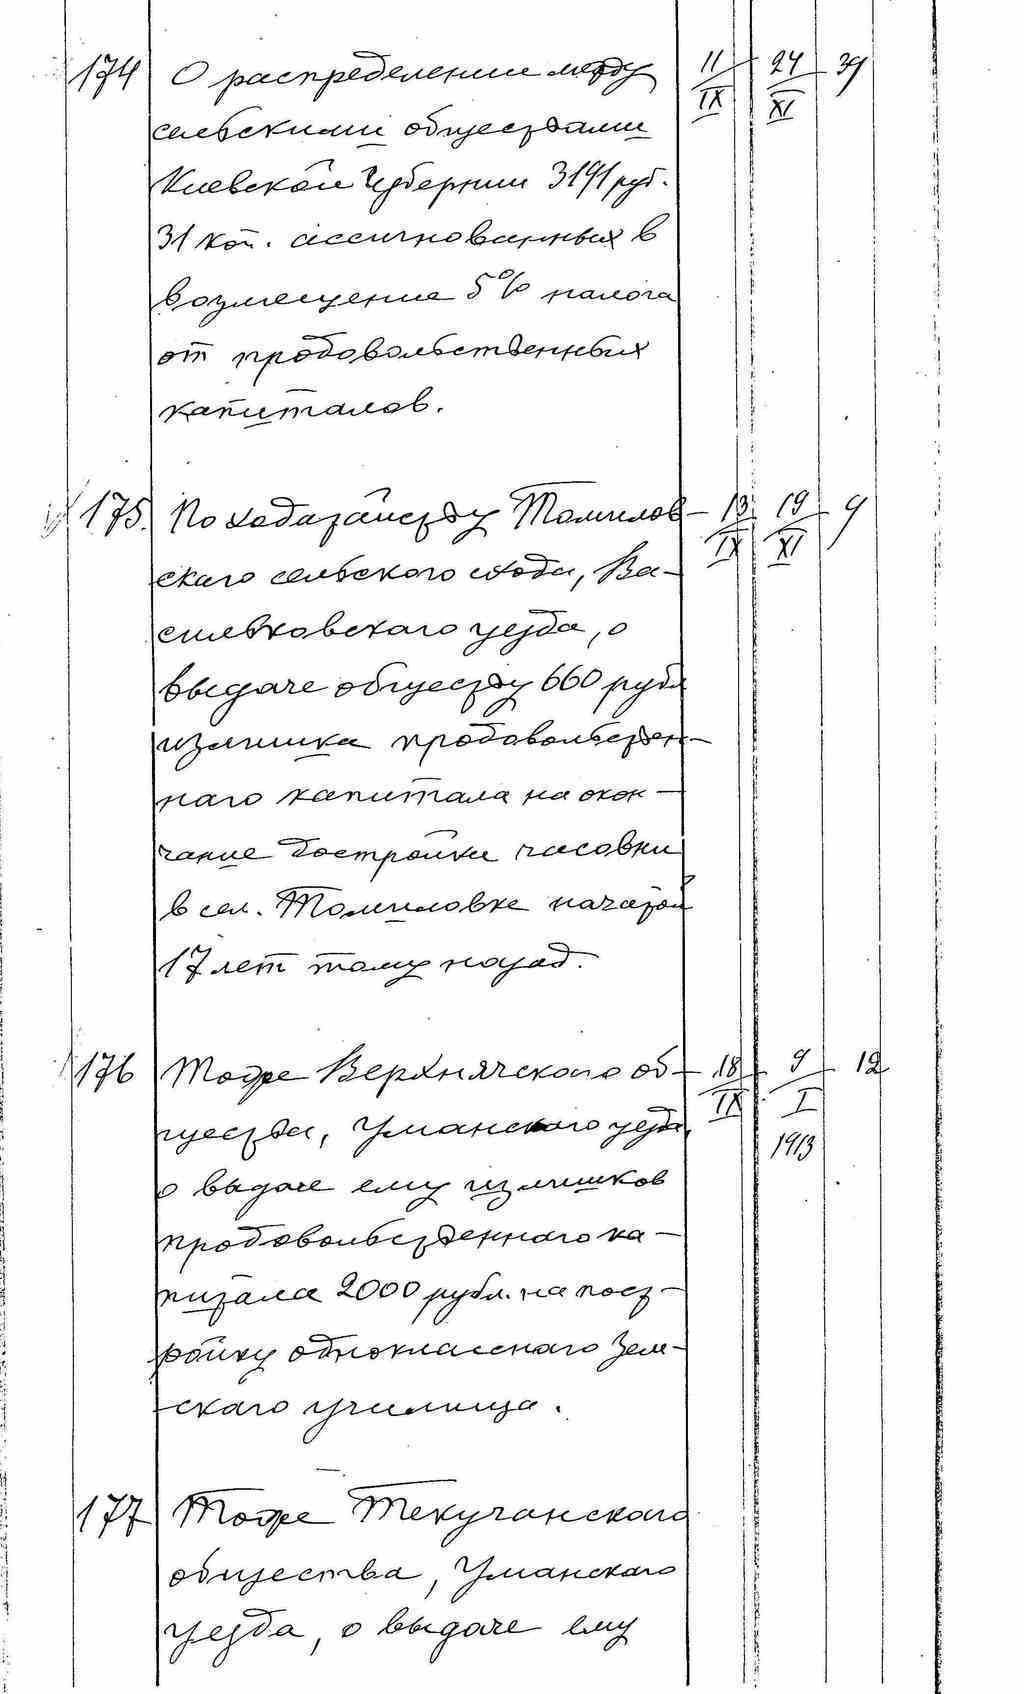 174 О распределении между 11/IX 24/XI 39
сельскими обществами
Киевской губернии 3191 руб.
31 коп. ассигнованных в
возмещение 5% налога
от продовольственных
капиталов.
175. По ходатайству Томилов- 13/IX 19/XI 9
скаго сельского схода, Ва-
сильковского уезда, о
выдаче обществу 660 рубл
излишка продовольствен-
наго капитала на окон-
чание достройки часовни
в сел. Томиловке начатой
17 лет тому назад.
176 Тоже Верхнячского об- 18/IX 9/I 1913 12
щества, Уманского уезда,
о выдаче ему излишков
продовольственнаго ка-
питала 2000 рубл. на пост-
ройку одноклассного Зем-
скаго училища.
177 Тоже Текучанского
общества, Уманского
уезда, о выдаче ему